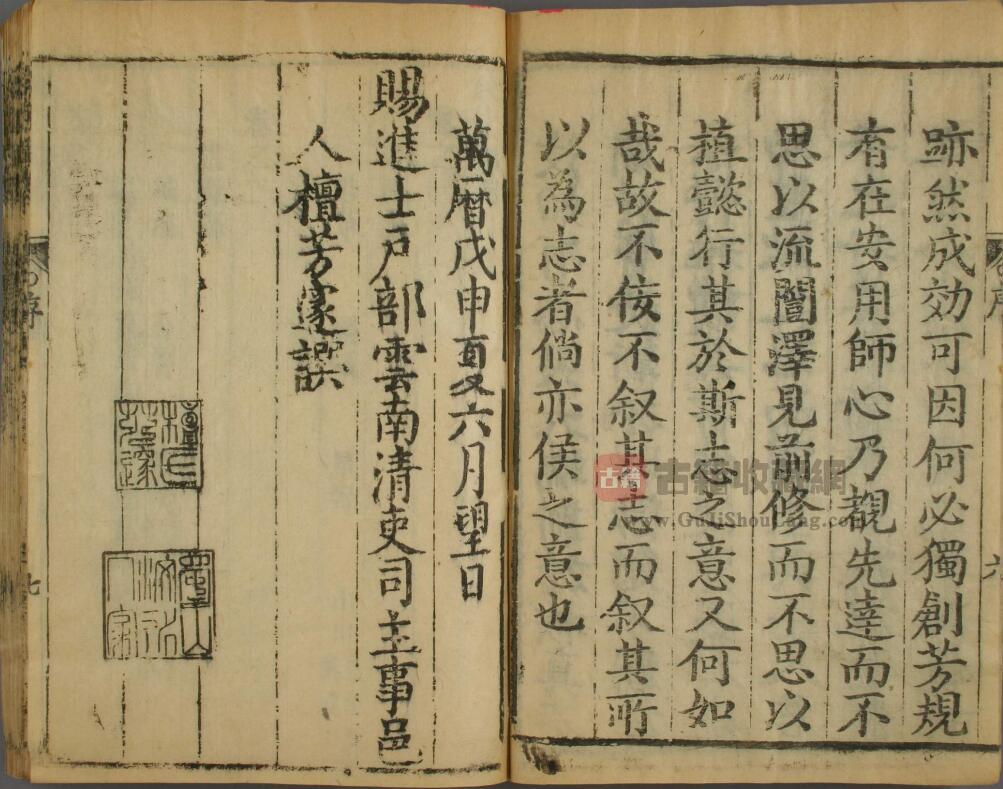 跡然成効可因何必獨創芳規
有在安用師心乃覩先達而不
思以流闓澤見前修而不思以
植懿行其於斯志之意又何如
哉故不佞不叙其志而叙其所
以為志者倘亦侯之意也
萬曆戊申夏六月望日
賜進士戶部雲南清吏司主事邑
人檀芳邃譔
序
六
序
七
古籍收藏網
www.GuJiShouCang.com